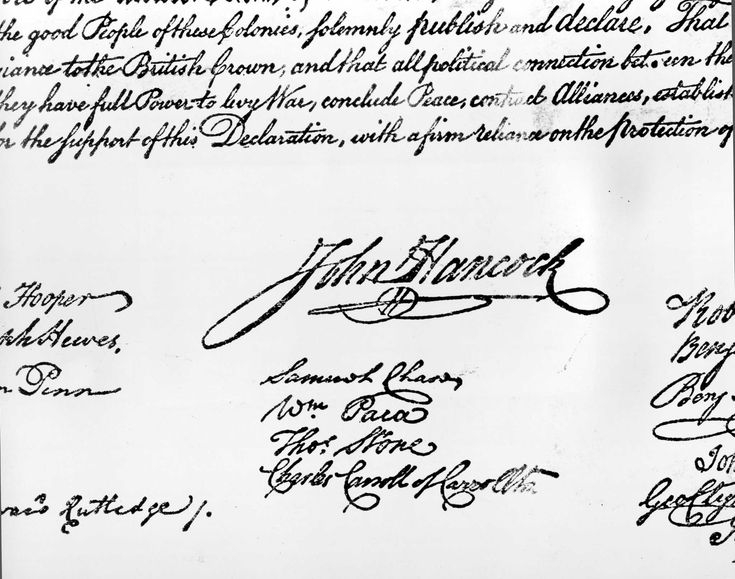 the good People of these Colonies, solemnly publish and declare, That
iance to the British Crown, and that all political connection bet een the
they have full Power to levy War, conclude Peace, contract Alliances, establish
or the support of this Declaration, with a firm reliance on the Protection of
John Hancock
Hooper
Hewes,
Penn
Samuel Chase
Wm Paca
Thos. Stone
Charles Carroll of Carrollton
Rutledge /.
Rob
Benj
Benj
Joh
Geo Clym